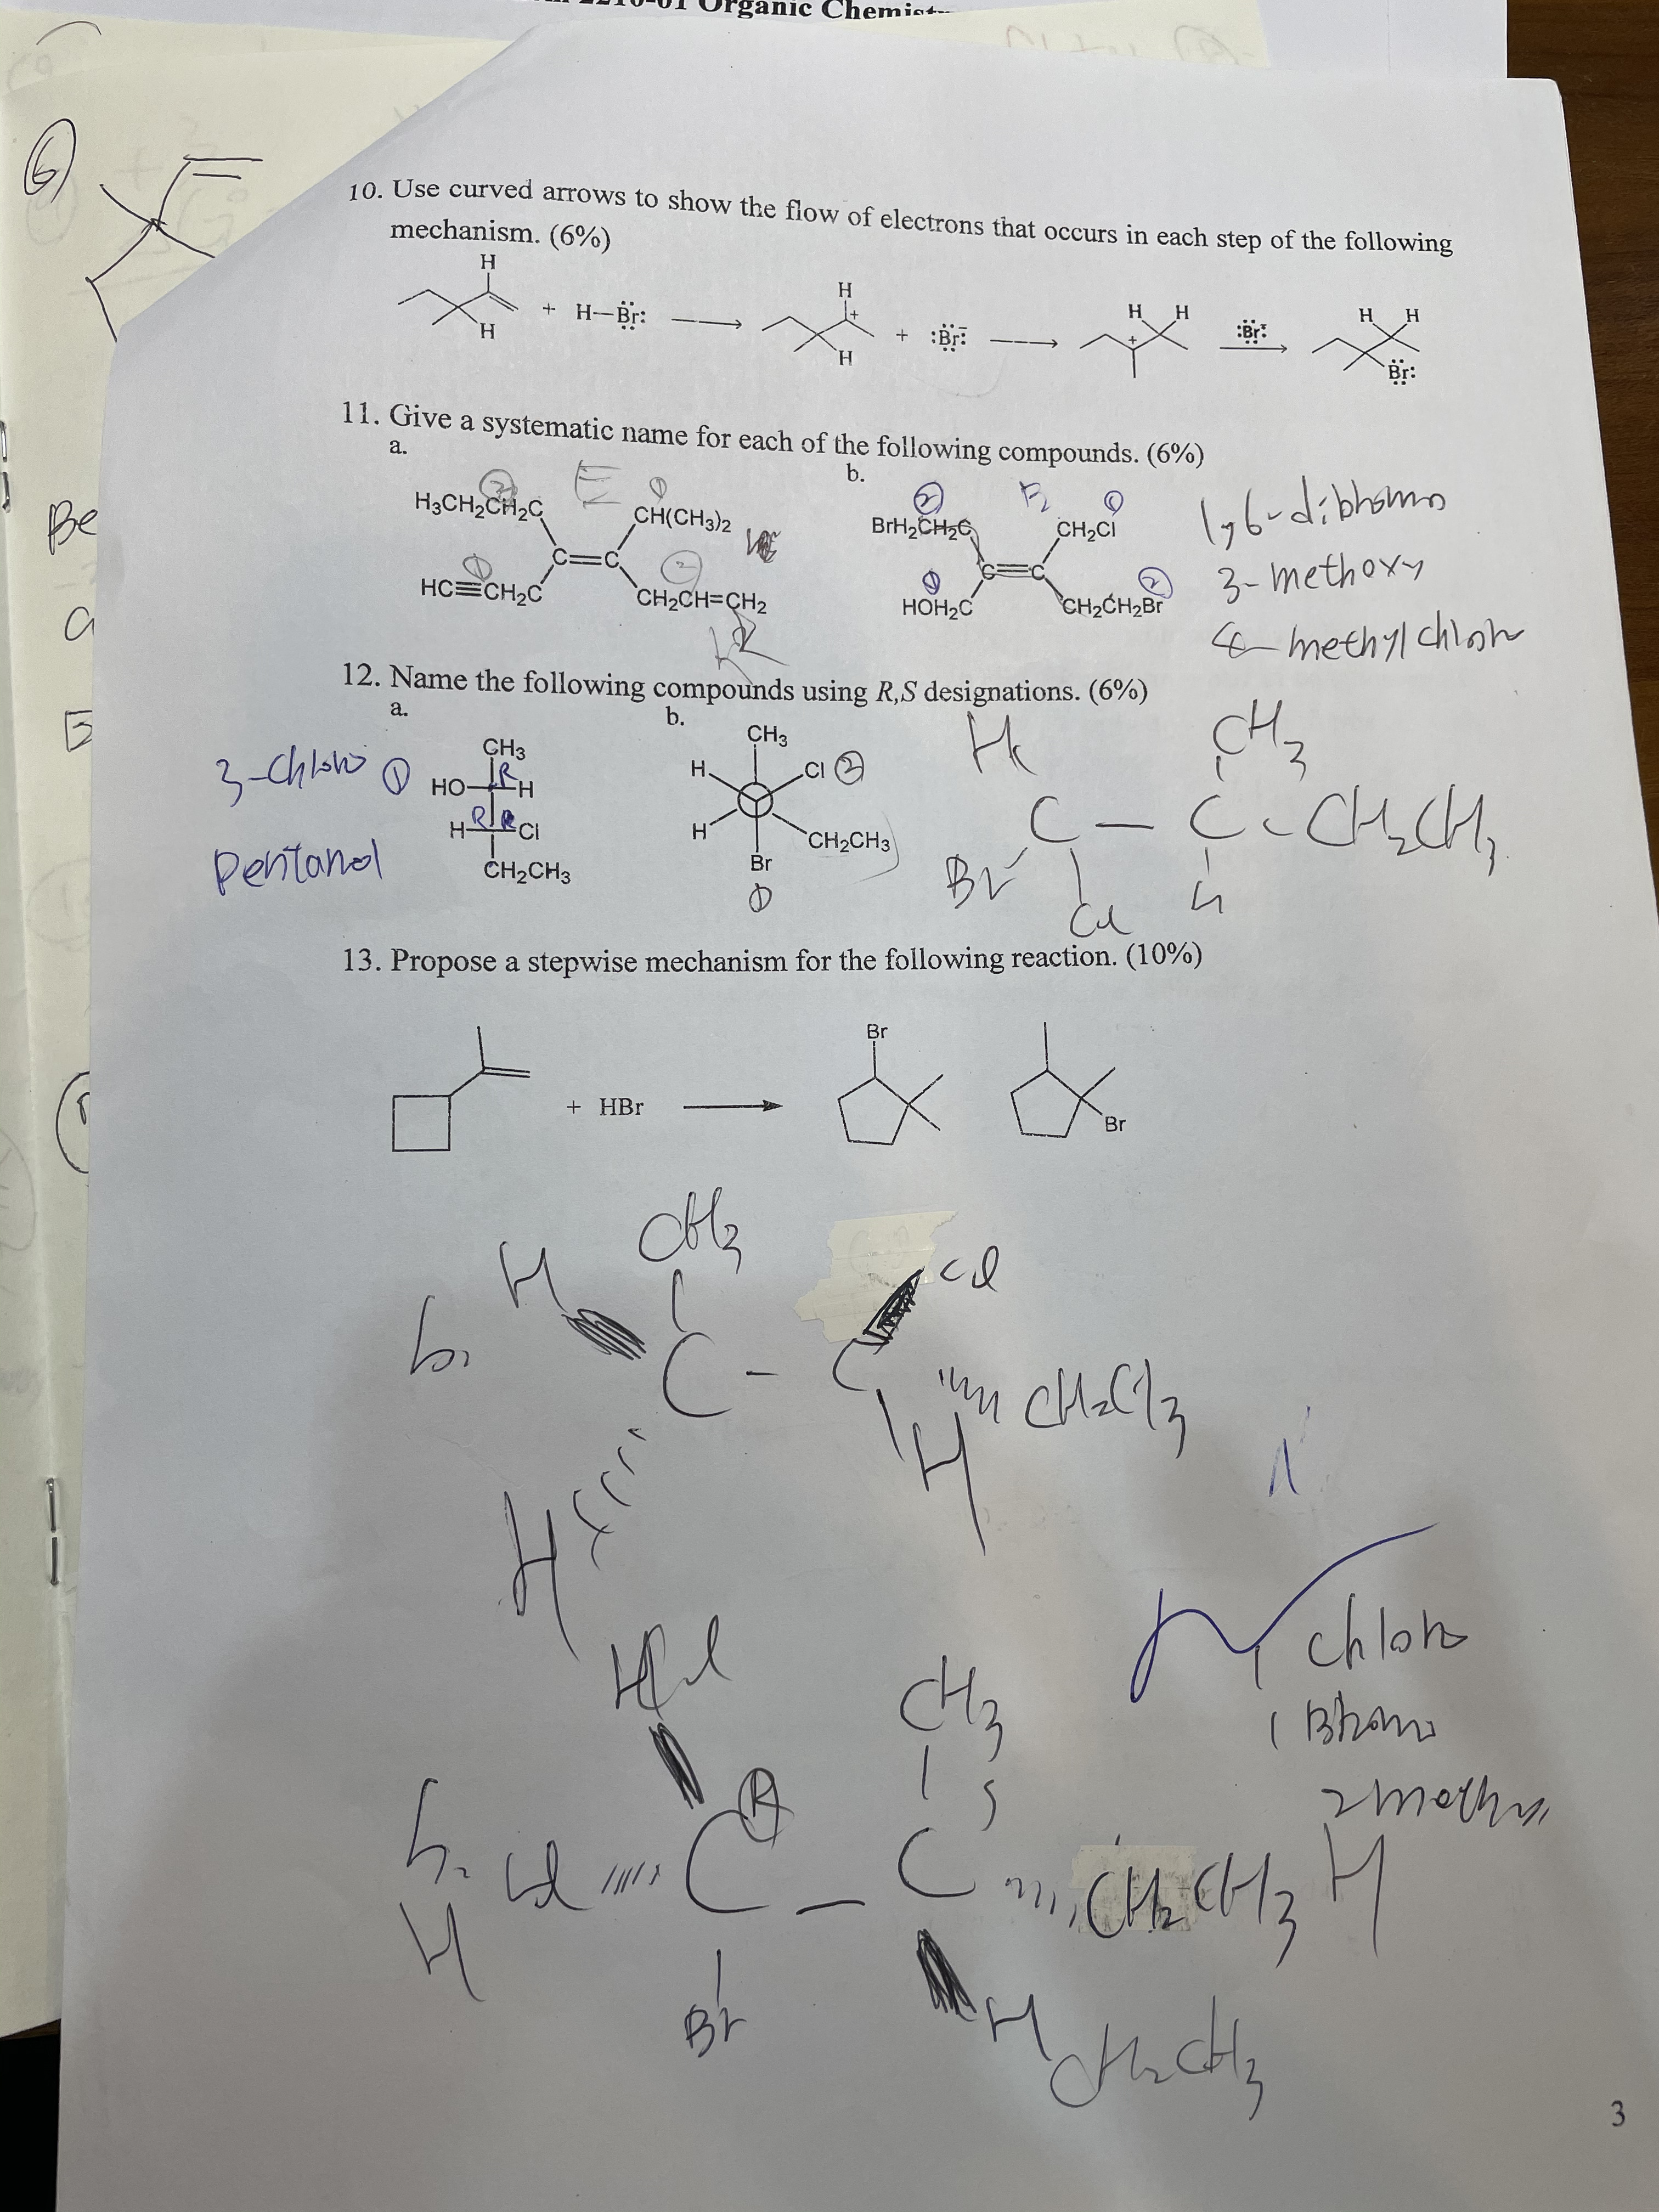 Organic Chemist
6
10. Use curved arrows to show the flow of electrons that occurs in each step of the following
mechanism. (6%)
H
H
+ H—Br:
H
+
H
+ :Br:⁻
H H
+
:Br:⁻
H H
Br:
11. Give a systematic name for each of the following compounds. (6%)
a.
b.
H₃CH₂CH₂C
2
E
1
CH(CH₃)₂
C=C
1
2
HC≡CH₂C
CH₂CH=CH₂
BrH₂CH₂C
2
1
CH₂Cl
C=C
1
2
HOH₂C
CH₂CH₂Br
1,6-dibromo
3-methoxy
methylchloro
Be
12. Name the following compounds using R,S designations. (6%)
a.
b.
3-Chloro
1
Pentanol
CH₃
R
HO H
R R
H Cl
CH₂CH₃
CH₃
H Cl 2
H CH₂CH₃
Br
1
H CH₃
C — C - CH₂CH₃
Br Cl H
13. Propose a stepwise mechanism for the following reaction. (10%)
+ HBr
Br
Br
b.
H CH₃ Cl
C - C
H H CH₂CH₃
chloro
1 Bromo
b.
CH₃
R S
Cl C — C CH₂CH₃ H
H
Br H
CH₂CH₃
3